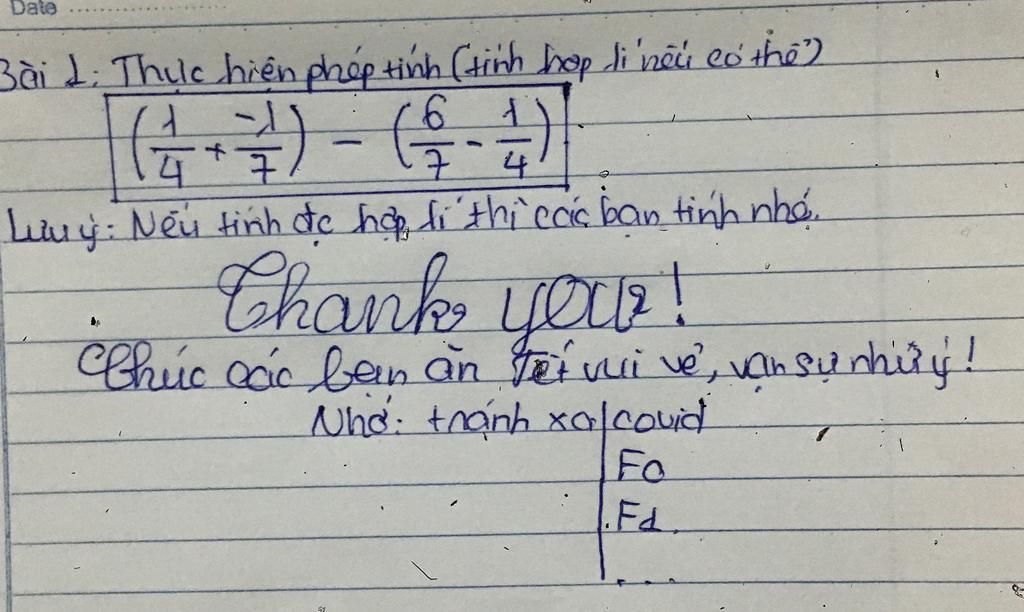 Date ..................
Bài 1: Thực hiện phép tính (tính hợp lí nếu có thể)
(1/4 + -1/7) - (6/7 - 1/4)
Lưu ý: Nếu tính đc hợp lí thì các bạn tính nhé.
Thank you!
Chúc các bạn ăn Tết vui vẻ, vạn sự như ý!
Nhớ: tránh xa covid
F0
F1
....